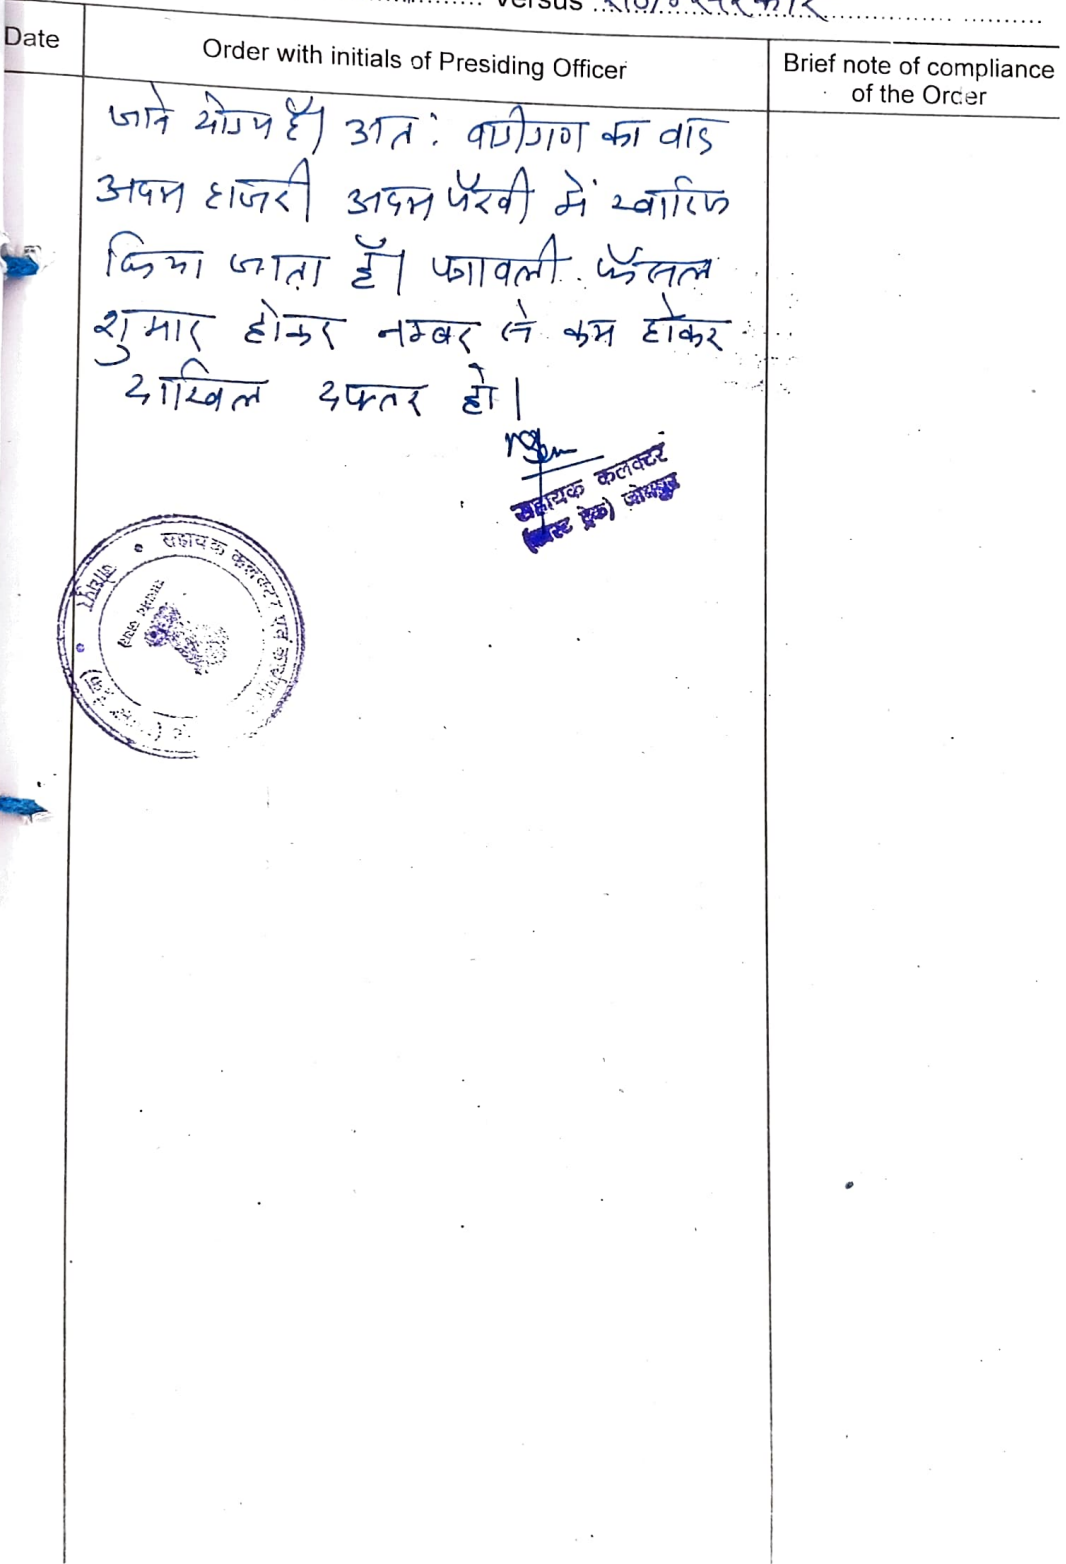 versus राज० सरकार
Date
Order with initials of Presiding Officer
Brief note of compliance
of the Order
जाने योग्य है। अतः वादीगण का वाद
अदम हाजरी अदम पैरवी में खारिज
किया जाता है। पत्रावली फैसल
शुमार होकर नम्बर से कम होकर
दाखिल दफ्तर हो।
सहायक कलक्टर
(फास्ट ट्रेक) जोधपुर
सहायक कलक्टर एवं
जोधपुर